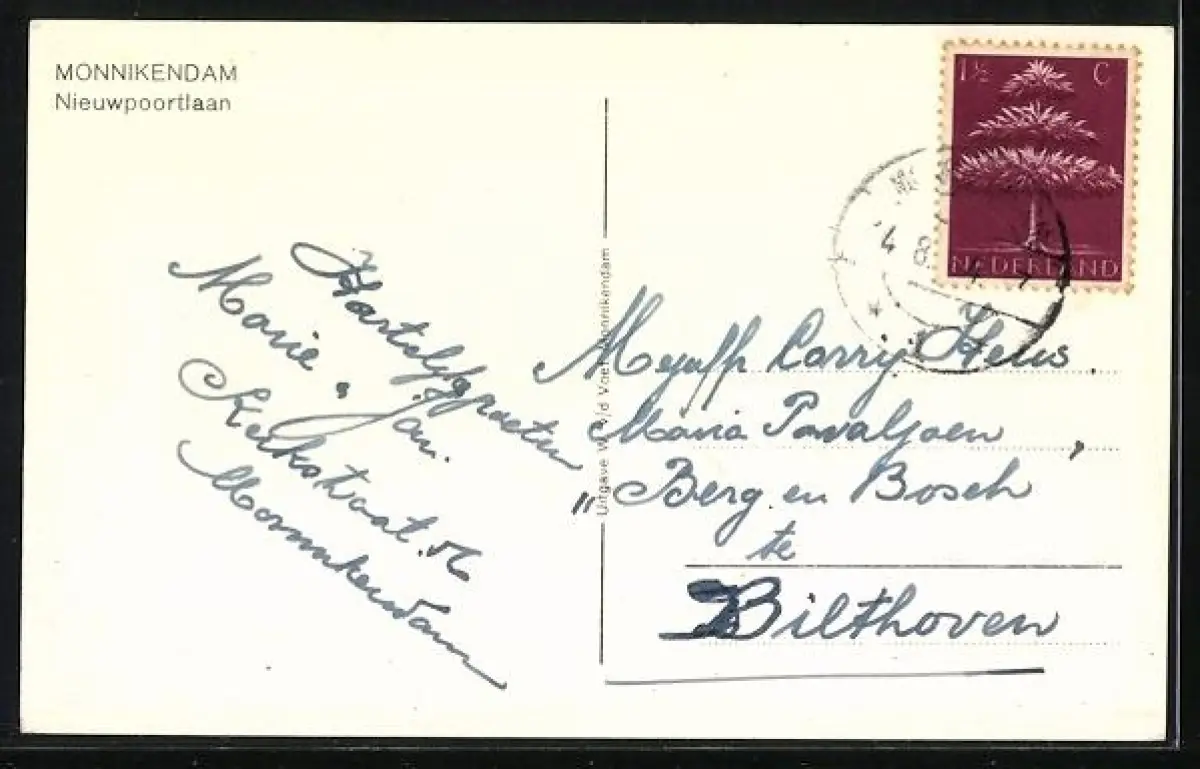 MONNIKENDAM
Nieuwpoortlaan
1½ C
NEDERLAND
4 8
Hartelijke groeten
Marie „ Jan.
Kerkstraat
Monnikendam
Uitgave W. v/d Voet Monnikendam
Mejuffr Corrij Heus.
Maria Paviljoen,
"Berg en Bosch
te
Bilthoven